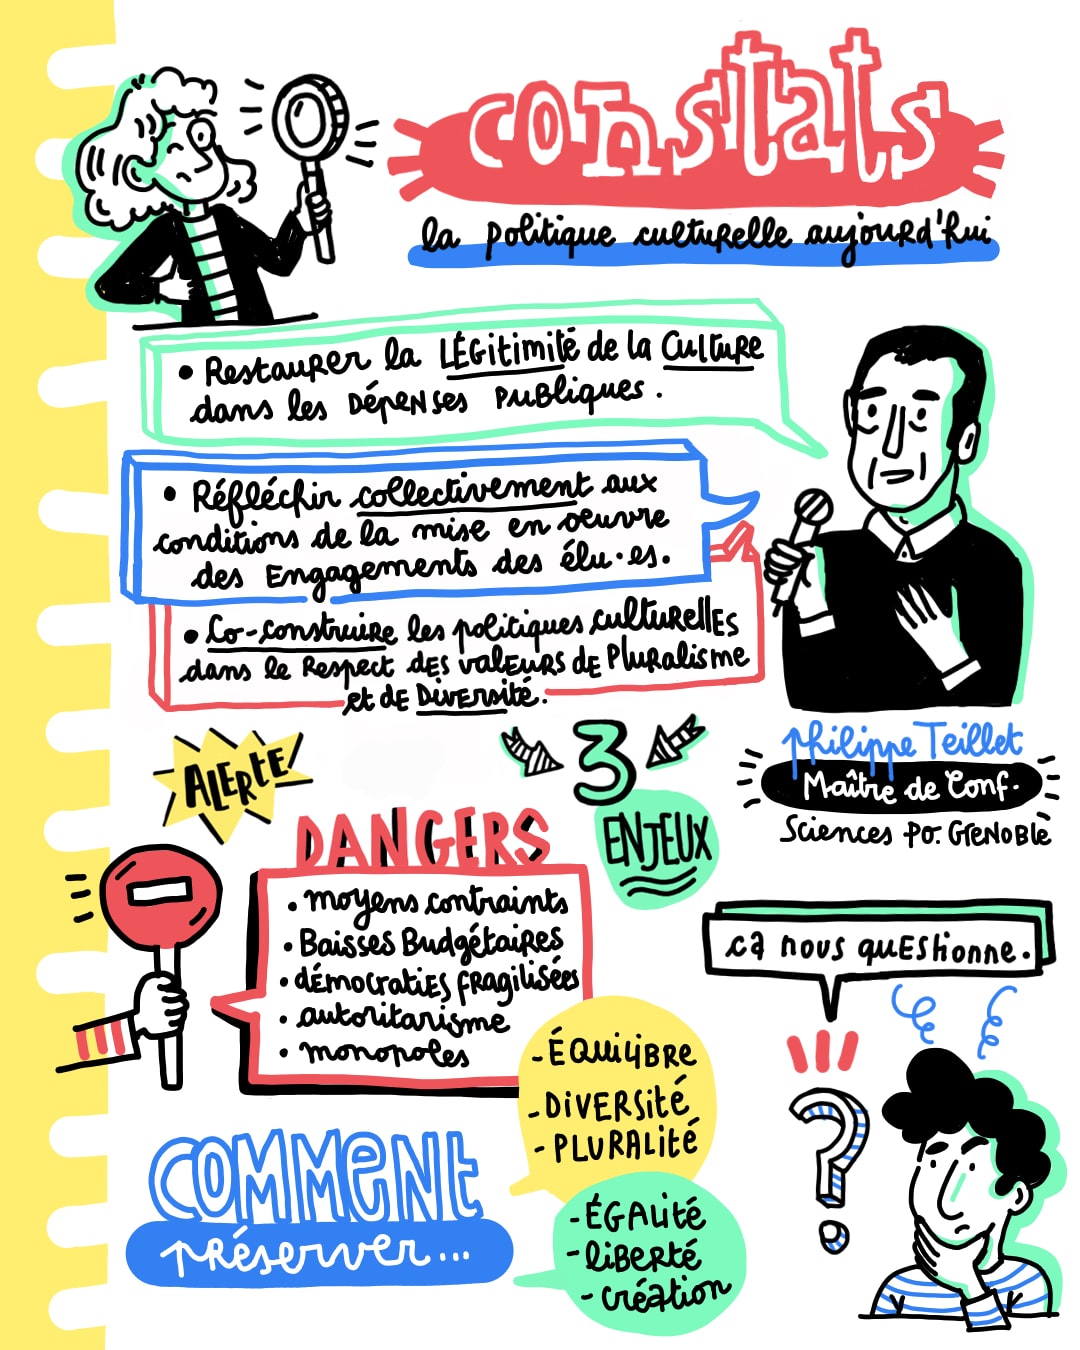 constats
la politique culturelle aujourd'hui
• Restaurer la LÉGitimité de la Culture
dans les Dépenses Publiques.
• Réfléchir collectivement aux
conditions de la mise en oeuvre
des Engagements des élu·es.
• Co-construire les politiques culturelles
dans le Respect des valeurs de Pluralisme
et de Diversité.
Philippe Teillet
Maître de Conf.
Sciences Po. Grenoble
3
ENJEUX
ALERTE
DANGERS
• moyens contraints
• Baisses Budgétaires
• démocraties fragilisées
• autoritarisme
• monopoles
ca nous questionne.
?
COMMENT
préserver...
- ÉQuilibre
- DIVERSité
- PLURALité
- ÉGALité
- liberté
- création